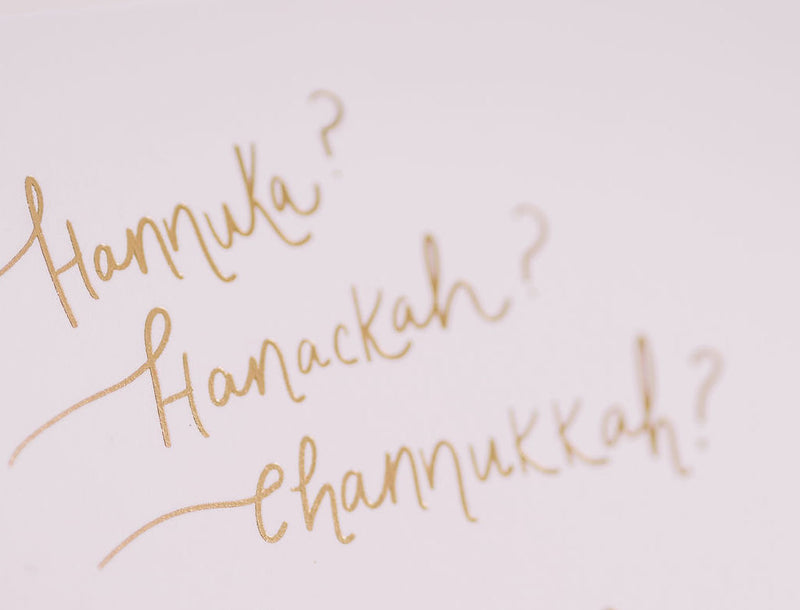 Hannuka?
Hanackah?
Channukkah?